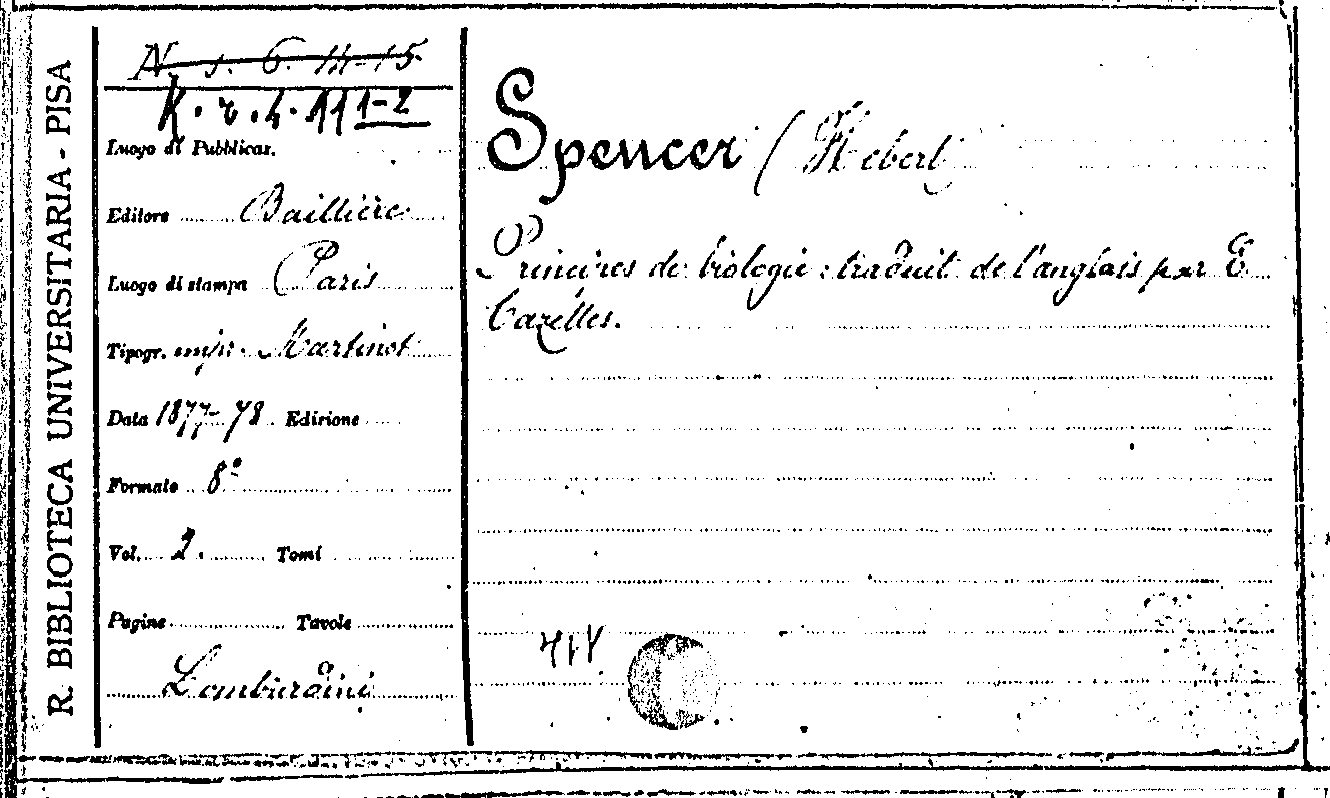 R. BIBLIOTECA UNIVERSITARIA - PISA
N. s. 6. 14-15
K. r. 4. 111-2
Luogo di Pubblicaz.
Editore Baillière
Luogo di stampa Paris
Tipogr. imp. Martinet
Data 1877-78. Edizione
Formato 8º
Vol. 2. Tomi
Pagine Tavole
Lombardini
Spencer (Hebert)
Principes de biologie: traduit de l'anglais par E
Cazelles.